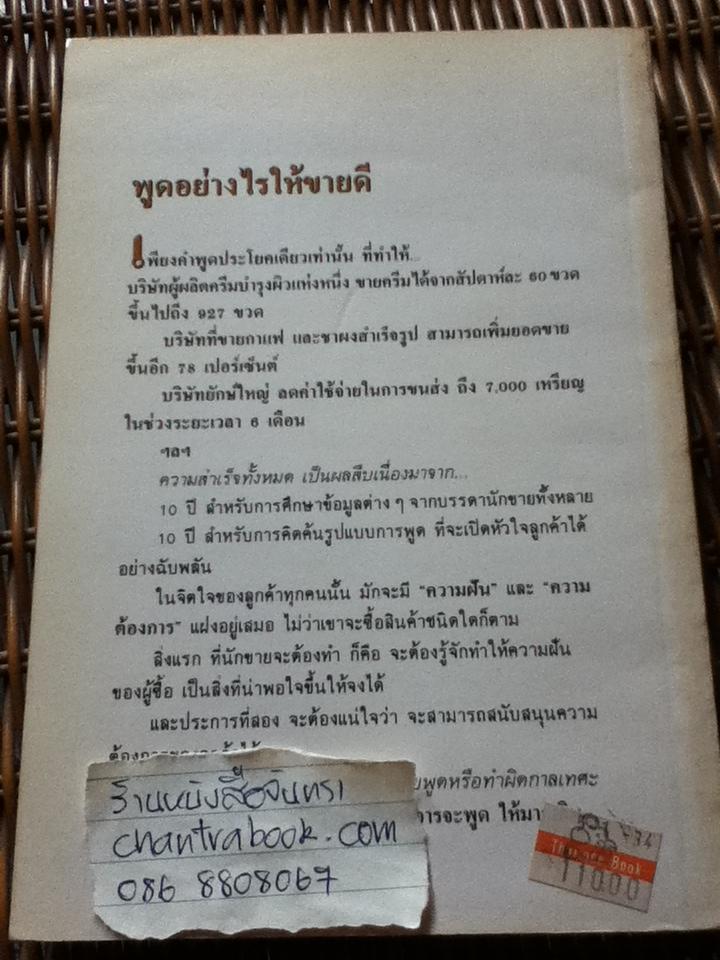 พูดอย่างไรให้ขายดี
เพียงคำพูดประโยคเดียวเท่านั้น ที่ทำให้...
บริษัทผู้ผลิตครีมบำรุงผิวแห่งหนึ่ง ขายครีมได้จากสัปดาห์ละ 60 ขวด
ขึ้นไปถึง 927 ขวด
บริษัทที่ขายกาแฟ และชาผงสำเร็จรูป สามารถเพิ่มยอดขาย
ขึ้นอีก 78 เปอร์เซ็นต์
บริษัทยักษ์ใหญ่ ลดค่าใช้จ่ายในการขนส่ง ถึง 7,000 เหรียญ
ในช่วงระยะเวลา 6 เดือน
ฯลฯ
ความสำเร็จทั้งหมด เป็นผลสืบเนื่องมาจาก...
10 ปี สำหรับการศึกษาข้อมูลต่าง ๆ จากบรรดานักขายทั้งหลาย
10 ปี สำหรับการคิดค้นรูปแบบการพูด ที่จะเปิดหัวใจลูกค้าได้
อย่างฉับพลัน
ในจิตใจของลูกค้าทุกคนนั้น มักจะมี "ความฝัน" และ "ความ
ต้องการ" แฝงอยู่เสมอ ไม่ว่าเขาจะซื้อสินค้าชนิดใดก็ตาม
สิ่งแรก ที่นักขายจะต้องทำ ก็คือ จะต้องรู้จักทำให้ความฝัน
ของผู้ซื้อ เป็นสิ่งที่น่าพอใจขึ้นให้จงได้
และประการที่สอง จะต้องแน่ใจว่า จะสามารถสนับสนุนความ
พูดหรือทำผิดกาลเทศะ
การจะพูด ให้มา
ร้านหนังสือจันทรา
chantrabook.com
086 8808067
Book
110.00